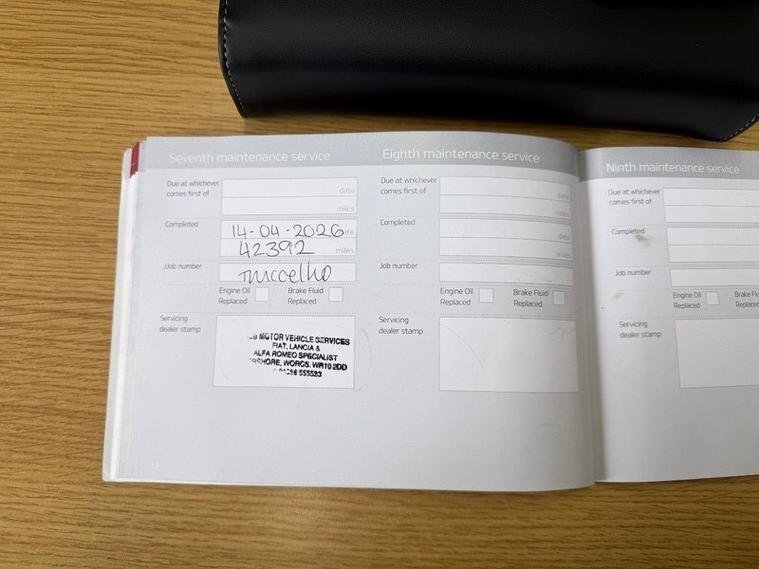 Seventh maintenance service
Due at whichever
comes first of
date
miles
Completed
14-04-2026
miles
42392
Job number
Engine Oil
Replaced
Brake Fluid
Replaced
Servicing
dealer stamp
MOTOR VEHICLE SERVICES
FIAT, LANCIA &
ALFA ROMEO SPECIALIST
WORCS. WR10 2DD
555533
Eighth maintenance service
Due at whichever
comes first of
date
miles
Completed
date
miles
Job number
Engine Oil
Replaced
Brake Fluid
Replaced
Servicing
dealer stamp
Ninth maintenance service
Due at whichever
comes first of
Completed
Job number
Engine Oil
Replaced
Replaced
Servicing
dealer stamp